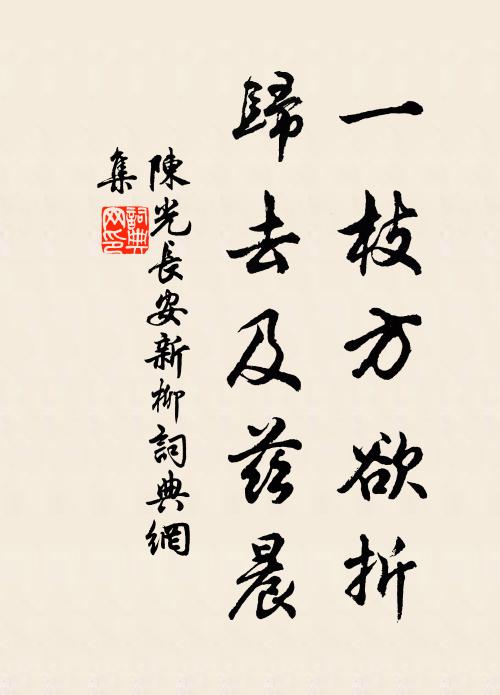 一枝方欲折
歸去及茲晨
陳光長安新柳詞典網
集
詞典
网印